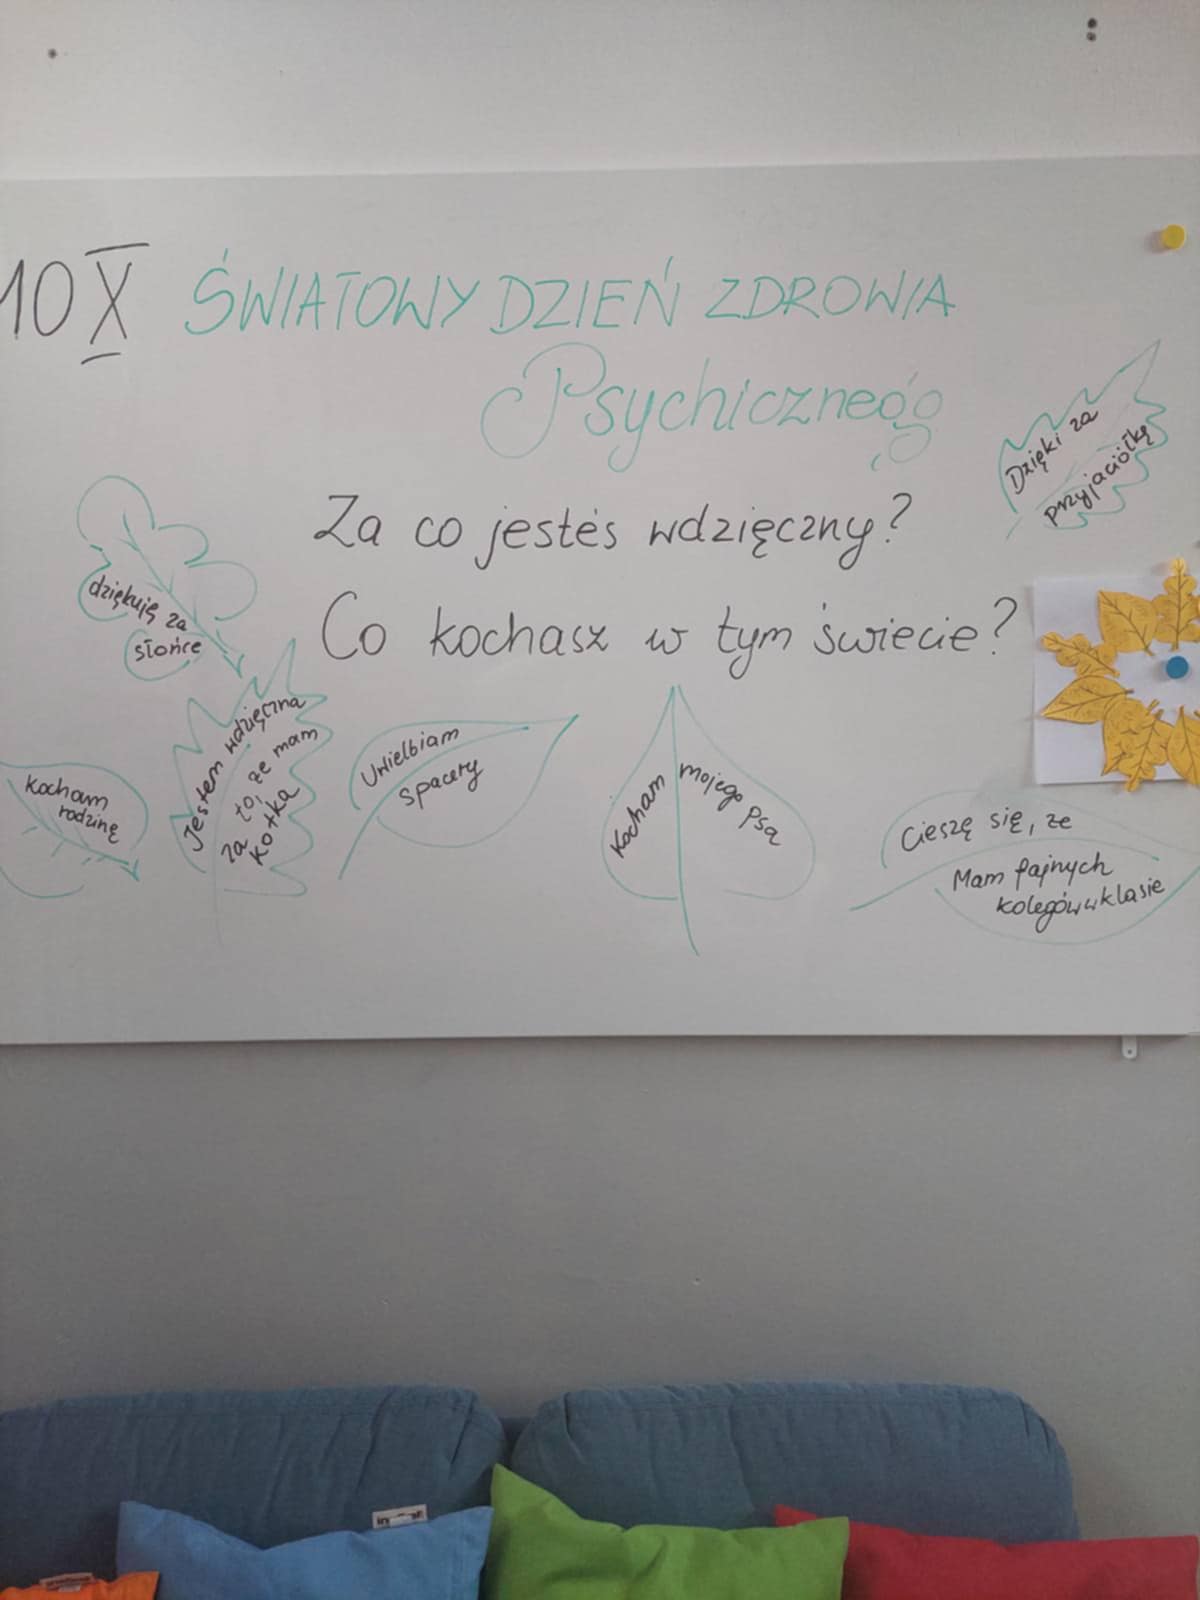 10 X ŚWIATOWY DZIEŃ ZDROWIA
Psychicznego
Dzięki za
przyjaciółkę
Za co jesteś wdzięczny?
Co kochasz w tym świecie?
dziękuję za
słońce
Jestem wdzięczna
za to, że mam
kotka
kocham
rodzinę
Uwielbiam
spacery
Kocham mojego psa
Cieszę się, że
Mam fajnych
kolegów w klasie